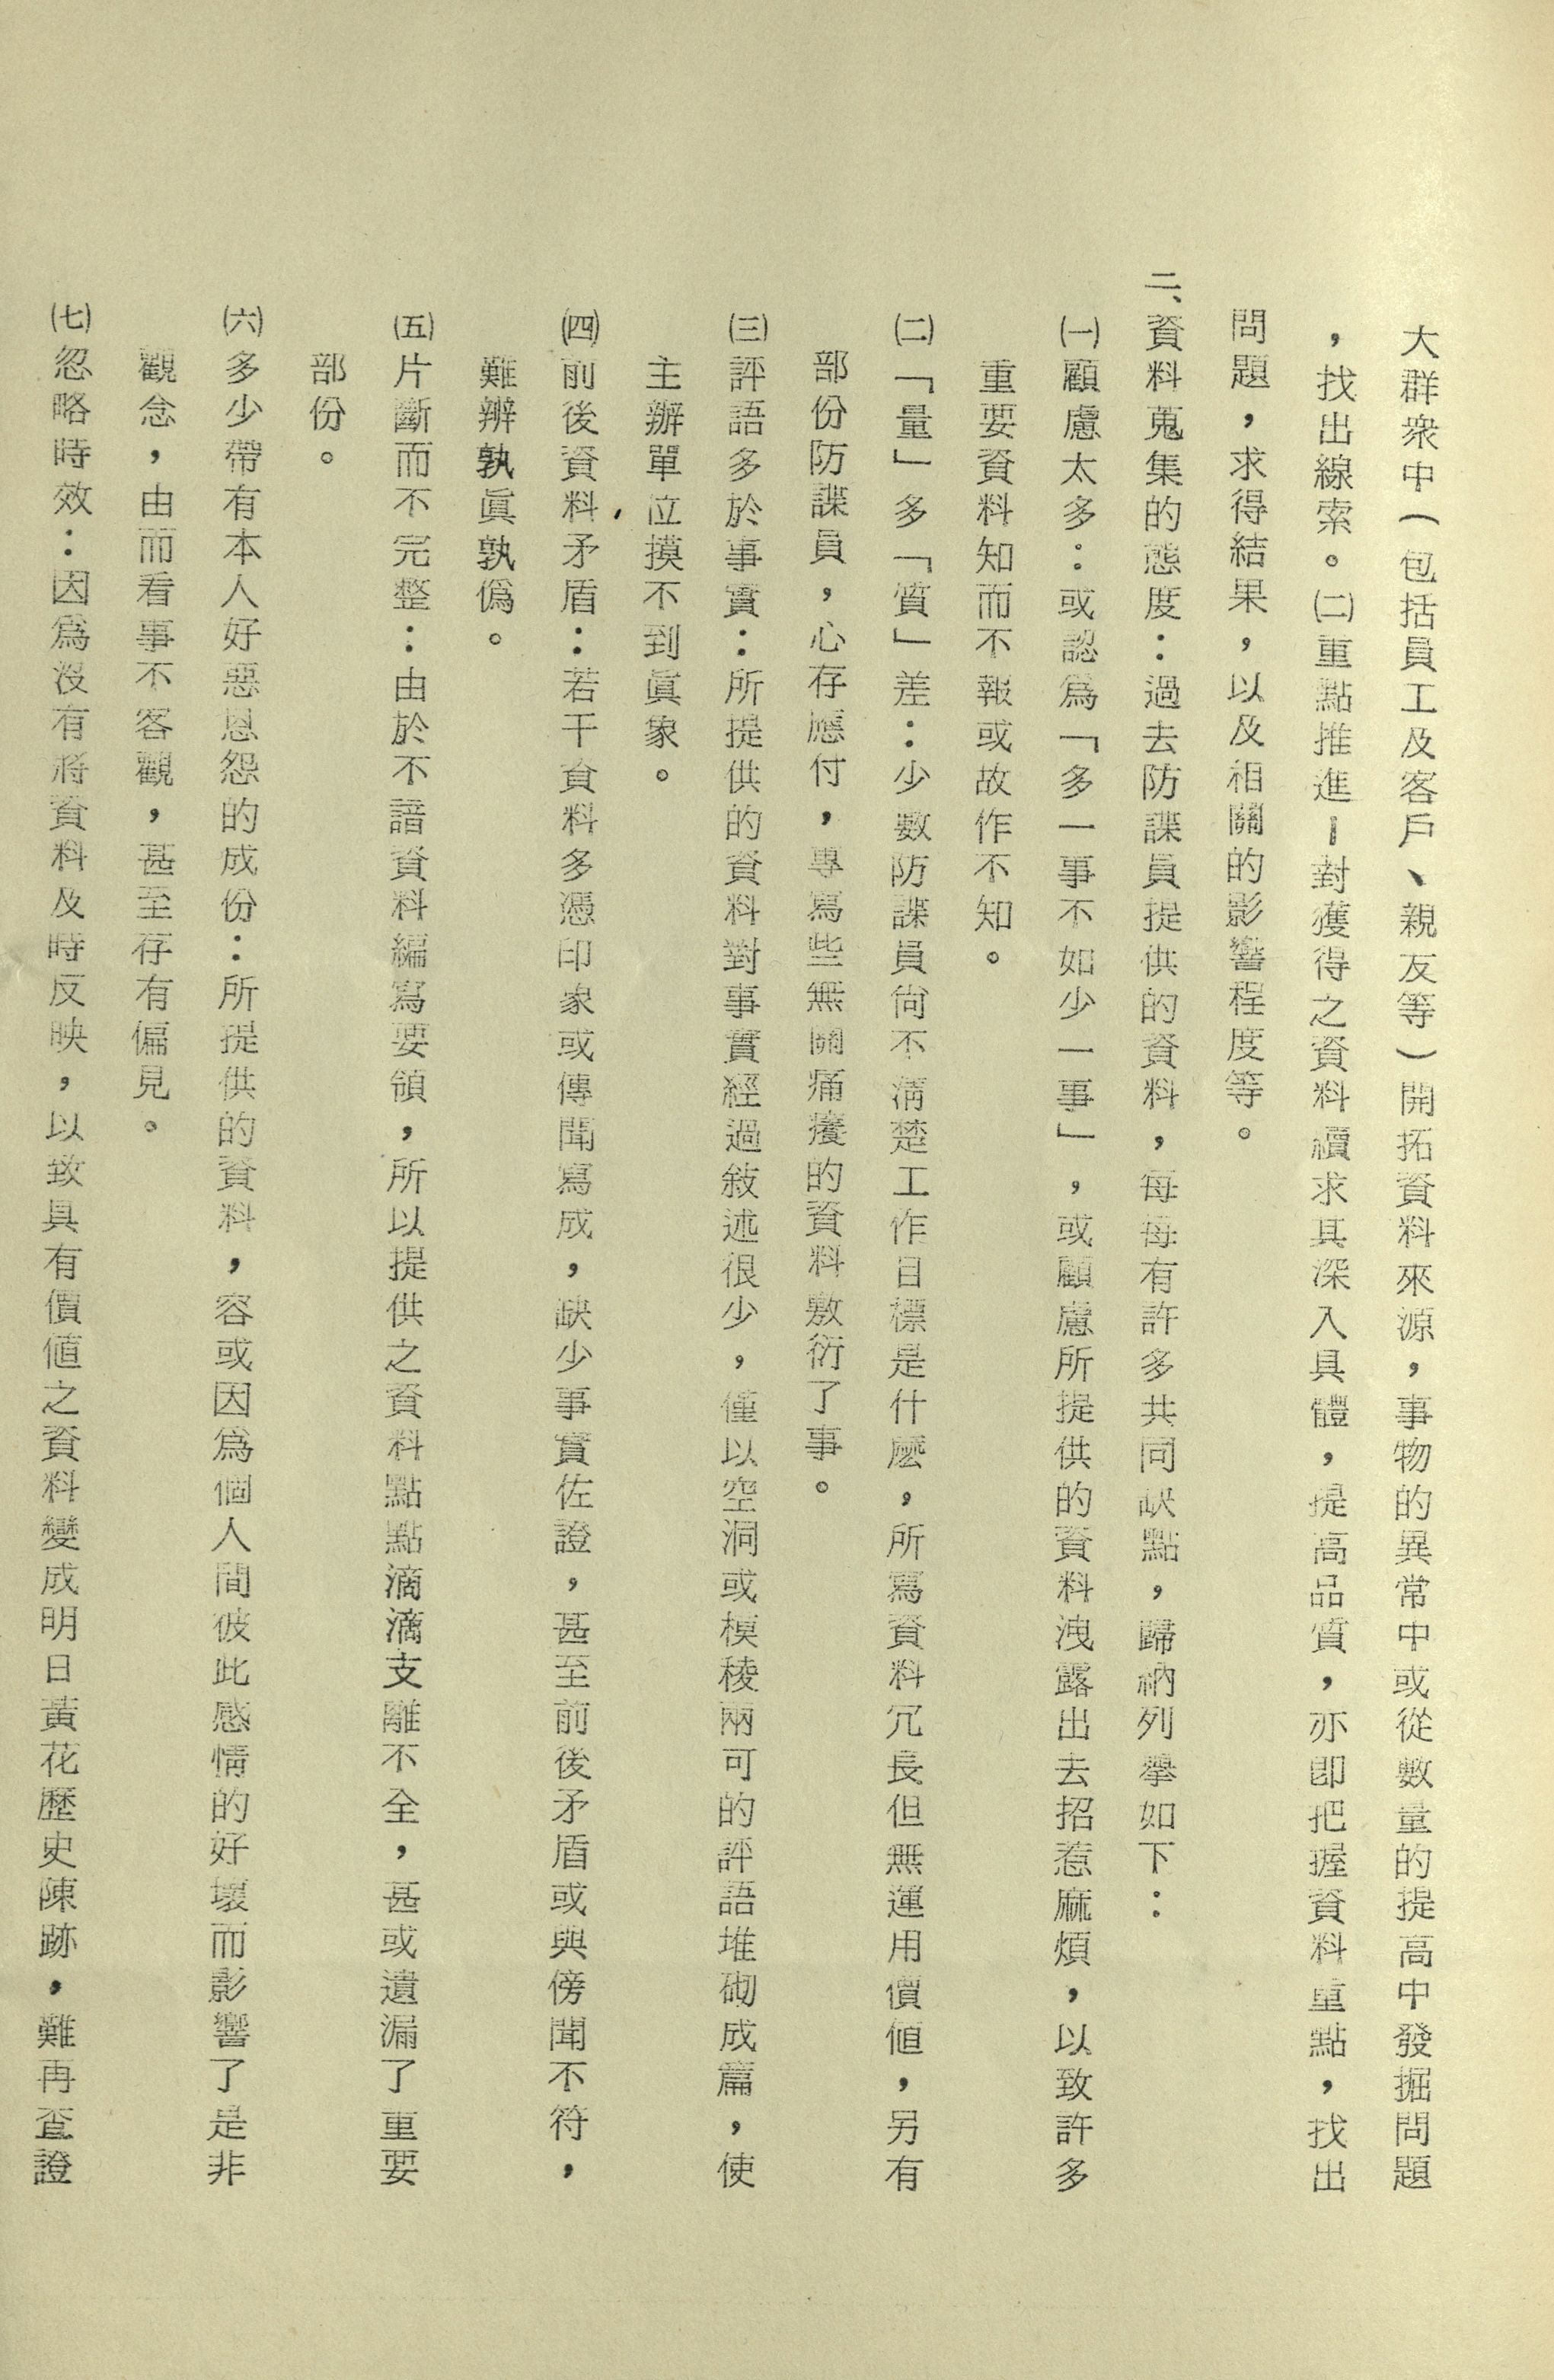 大群衆中(包括員工及客戶、親友等)開拓資料來源,事物的異常中或從數量的提高中發掘問題
,找出線索。㈡重點推進—對獲得之資料續求其深入具體,提高品質,亦卽把握資料重點,找出
問題,求得結果,以及相關的影響程度等。
二、資料蒐集的態度:過去防諜員提供的資料,每每有許多共同缺點,歸納列擧如下:
㈠顧慮太多:或認爲「多一事不如少一事」,或顧慮所提供的資料洩露出去招惹麻煩,以致許多
重要資料知而不報或故作不知。
㈡「量」多「質」差:少數防諜員尙不淸楚工作目標是什麼,所寫資料冗長但無運用價値,另有
部份防諜員,心存應付,專寫些無關痛癢的資料敷衍了事。
㈢評語多於事實:所提供的資料對事實經過敍述很少,僅以空洞或模稜兩可的評語堆砌成篇,使
主辦單位摸不到眞象。
㈣前後資料矛盾:若干資料多憑印象或傳聞寫成,缺少事實佐證,甚至前後矛盾或與傍聞不符,
難辨孰眞孰僞。
㈤片斷而不完整:由於不諳資料編寫要領,所以提供之資料點點滴滴支離不全,甚或遺漏了重要
部份。
㈥多少帶有本人好惡恩怨的成份:所提供的資料,容或因爲個人間彼此感情的好壞而影響了是非
觀念,由而看事不客觀,甚至存有偏見。
㈦忽略時效:因爲沒有將資料及時反映,以致具有價値之資料變成明日黃花歷史陳跡,難再查證